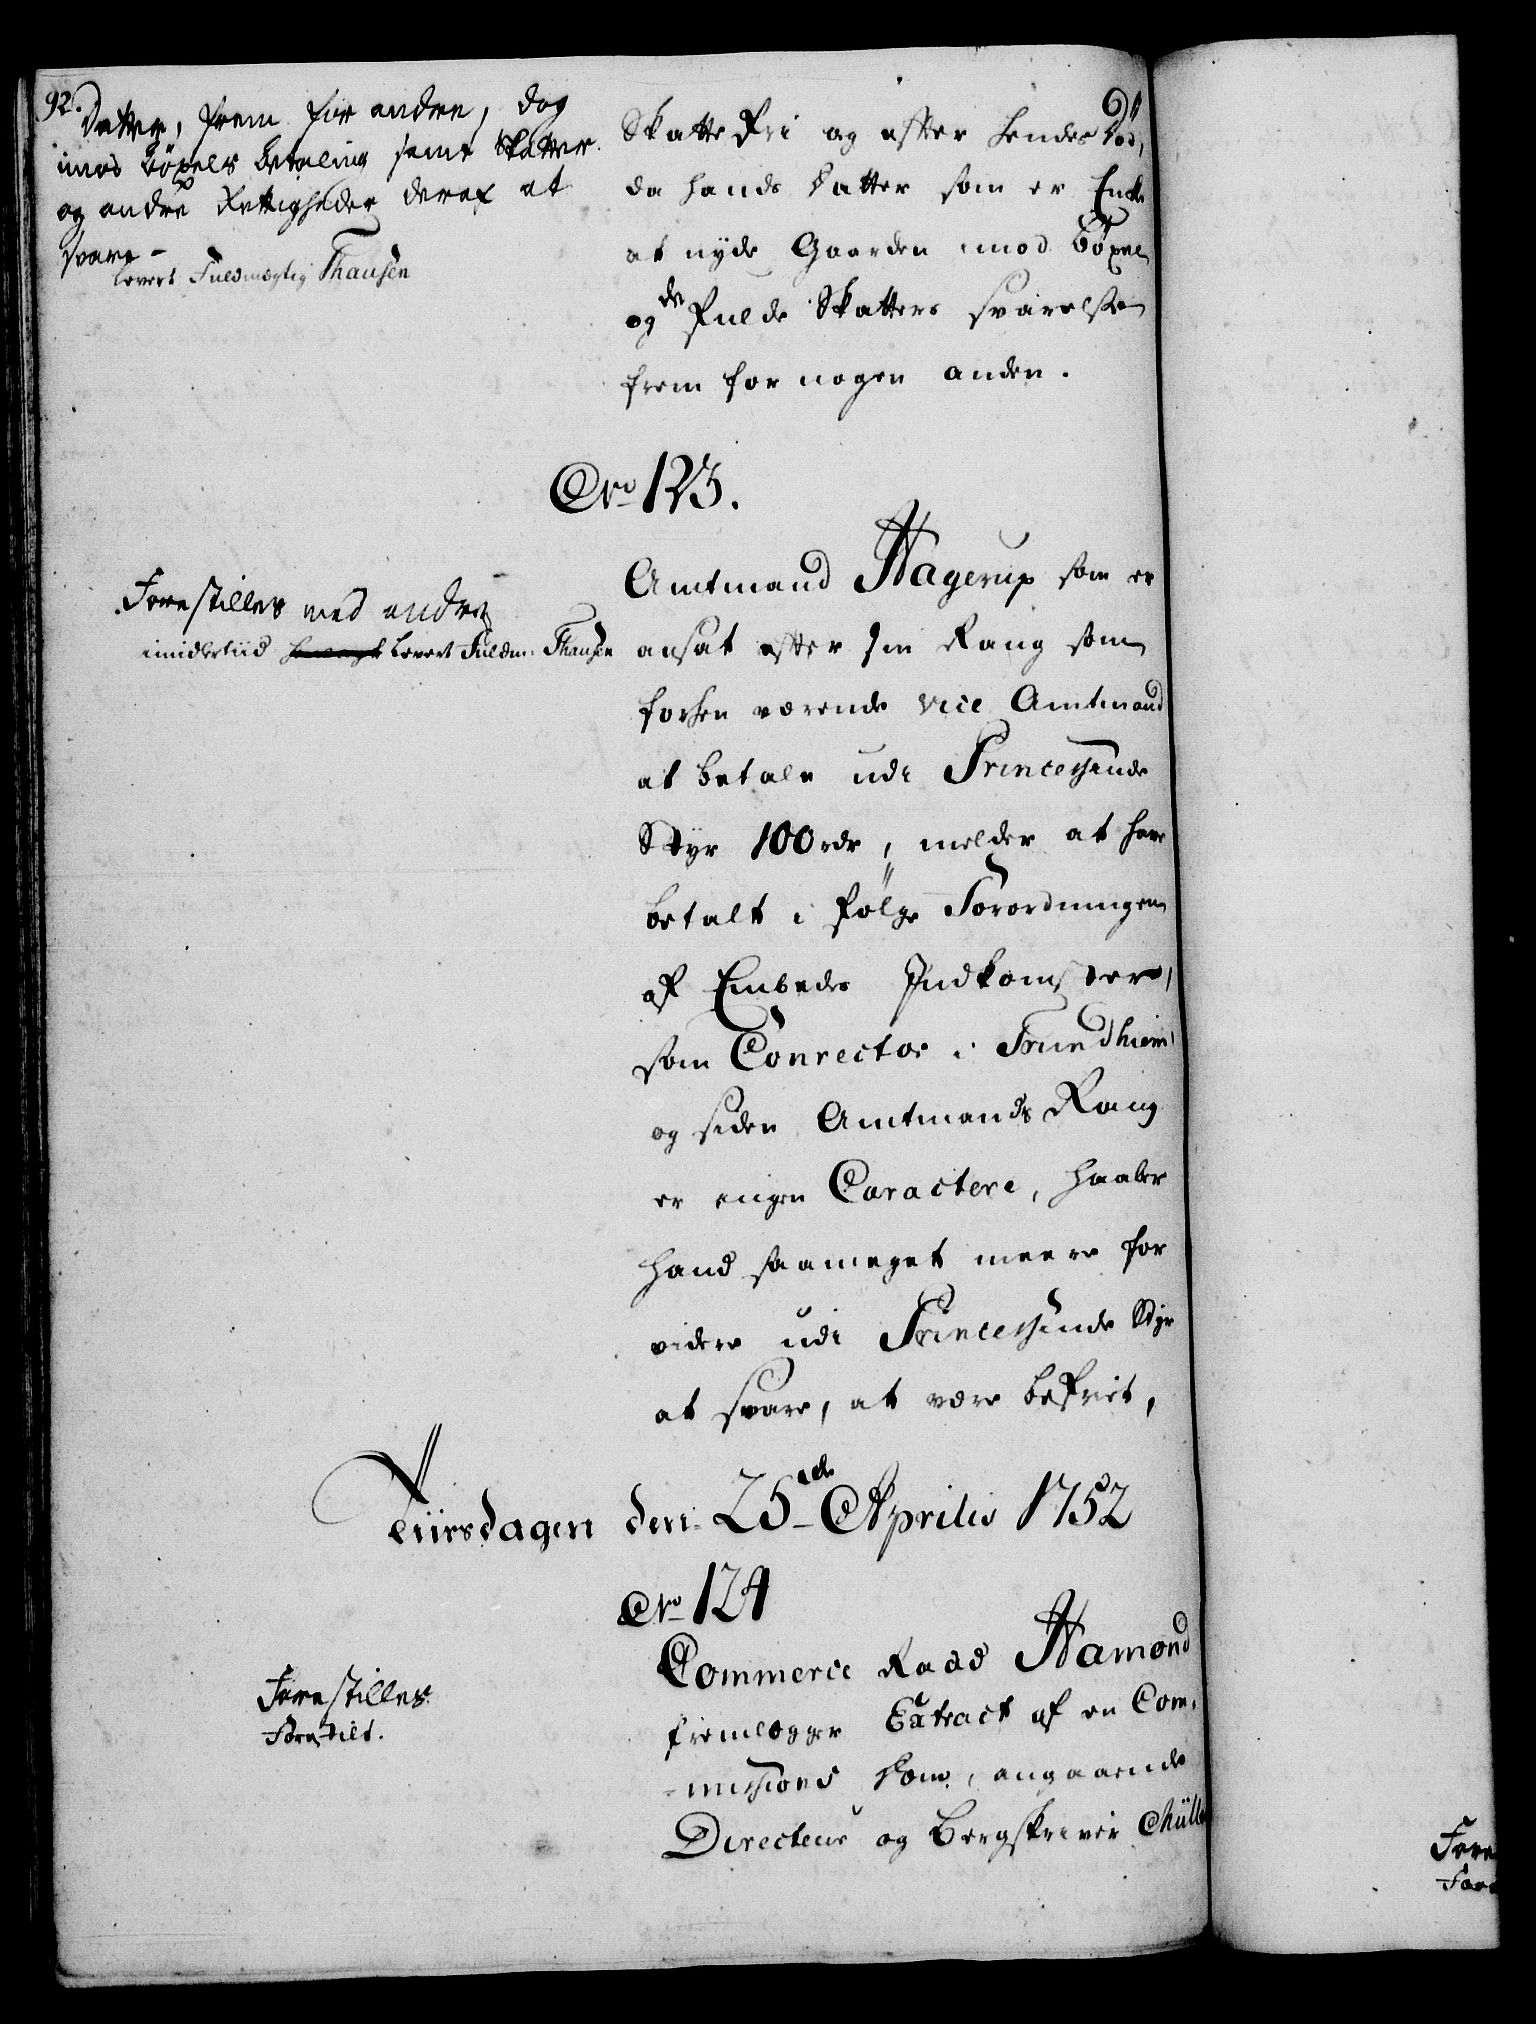 92.
Datter, frem for andre, dog
imod Böxels betaling samt Skatter
og andre Rettigheder deraf at
svare -
levert Fuldmægtig Thausen
Skatte fri og efter hendes Död,
da hands Datter som er Encke
at nyde Gaarden imod Böxel
og de fulde Skatters svarelse
frem for nogen anden.
No 123.
Forestilles med andre
imidlertiid levert Fuldm: Thausen
Amtmand Hagerup som er
ansat efter sin Rang som
forhen værende vice Amtmand
at betale udi Princesseinde
Styr 100 rdr, melder at have
betalt i fölge Forordningen
af Embeds Indkomster,
som Conrector i Trundhiem
og siden Amtmands Rang
er ingen Caractere, haaber
hand saameget meere for
videre udi Princessinde Styr
at svare, at være befriet,
Tiirsdagen den 25de Aprilis 1752
No 124
Forestilles
Forestilt.
Commerce Raad Hamond
fremlegger Extract af en Com-
missions Dom, angaaende
Directeur og Bergskriver Müller